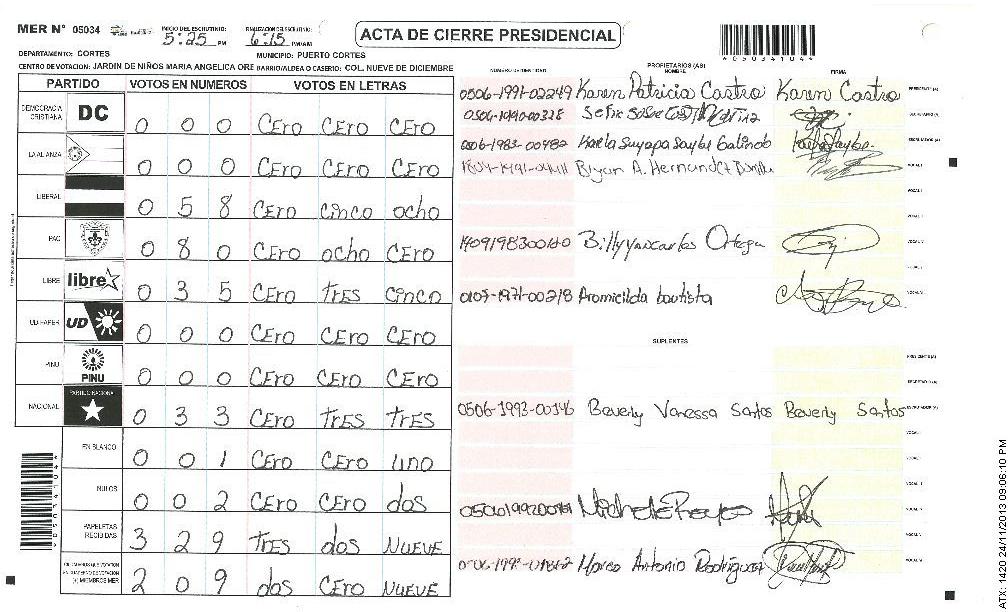 MER N° 05034 INICIO DEL ESCRUTINIO: 5:25 PM FINALIZACION DEL ESCRUTINIO: 6:15 PM/AM
ACTA DE CIERRE PRESIDENCIAL
*0503410 4*
DEPARTAMENTO: CORTES MUNICIPIO: PUERTO CORTES
CENTRO DE VOTACION: JARDIN DE NIÑOS MARIA ANGELICA ORE BARRIO/ALDEA O CASERIO: COL. NUEVE DE DICIEMBRE
PARTIDO VOTOS EN NUMEROS VOTOS EN LETRAS
DEMOCRACIA CRISTIANA DC 0 0 0 CEro CEro CEro
LA ALIANZA 0 0 0 CEro CEro CEro
LIBERAL 0 5 8 CEro cinco ocho
PAC 0 8 0 CEro ocho CEro
LIBRE libre 0 3 5 CEro TrES cinco
UD FAPER UD 0 0 0 CEro CEro CEro
PINU PINU 0 0 0 CEro CEro CEro
NACIONAL PARTIDO NACIONAL 0 3 3 CEro TrES TrES
EN BLANCO 0 0 1 CEro CEro uno
NULOS 0 0 2 CEro CEro dos
PAPELETAS RECIBIDAS 3 2 9 TrES dos NUEVE
CIUDADANOS QUE VOTARON EN CUADERNO DE VOTACION (+) MIEMBROS MER 2 0 9 dos CEro NUEVE
NUMERO DE IDENTIDAD PROPIETARIOS (AS) NOMBRE FIRMA
0506-1991-02249 Karen Patricia Castro Karen Castro PRESIDENTE (A)
0506-1990-00328 SECRETARIO (A)
0506-1983-00482 Karla Suyapa Saybe Galindo ESCRUTADOR (A)
Bryan A. Hernandez VOCAL I
Billy Ortega VOCAL V
Aromicilda bautista
SUPLENTES
PRESIDENTE (A)
SECRETARIO (A)
0506-1993-00346 Beverly Vanessa Santos Beverly Santos ESCRUTADOR (A)
Marco Antonio Rodriguez
ATX: 1420 24/11/2013 09:06:10 PM